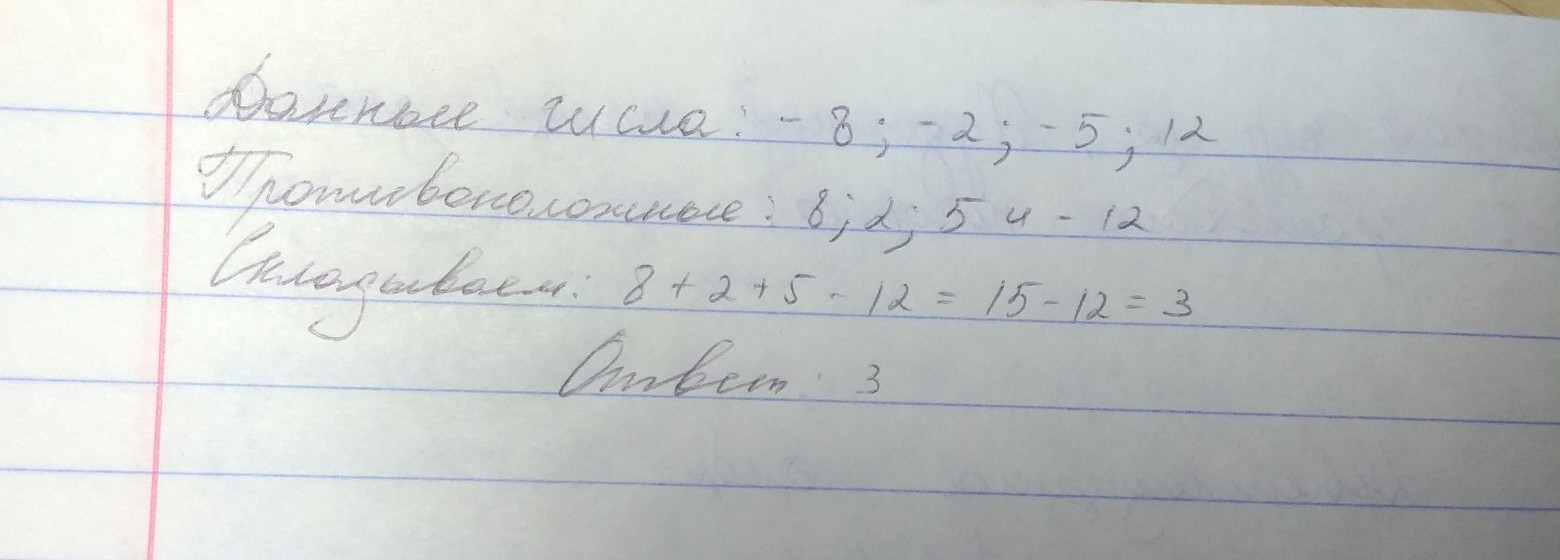 Данные числа: -8; -2; -5; 12
Противоположные: 8; 2; 5 и - 12
Складываем: 8 + 2 + 5 - 12 = 15 - 12 = 3
Ответ: 3